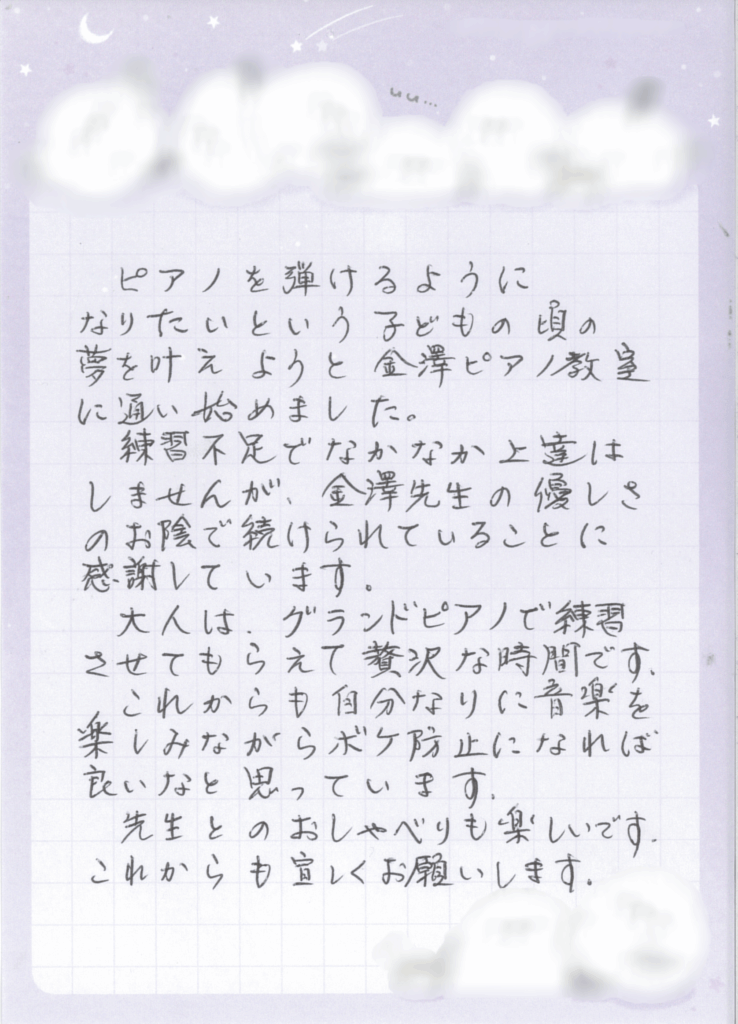 uu...
ピアノを弾けるように
なりたいという子どもの頃の
夢を叶えようと金澤ピアノ教室
に通い始めました。
練習不足でなかなか上達は
しませんが、金澤先生の優しさ
のお陰で続けられていることに
感謝しています。
大人は、グランドピアノで練習
させてもらえて贅沢な時間です。
これからも自分なりに音楽を
楽しみながらボケ防止になれば
良いなと思っています。
先生とのおしゃべりも楽しいです。
これからも宜しくお願いします。